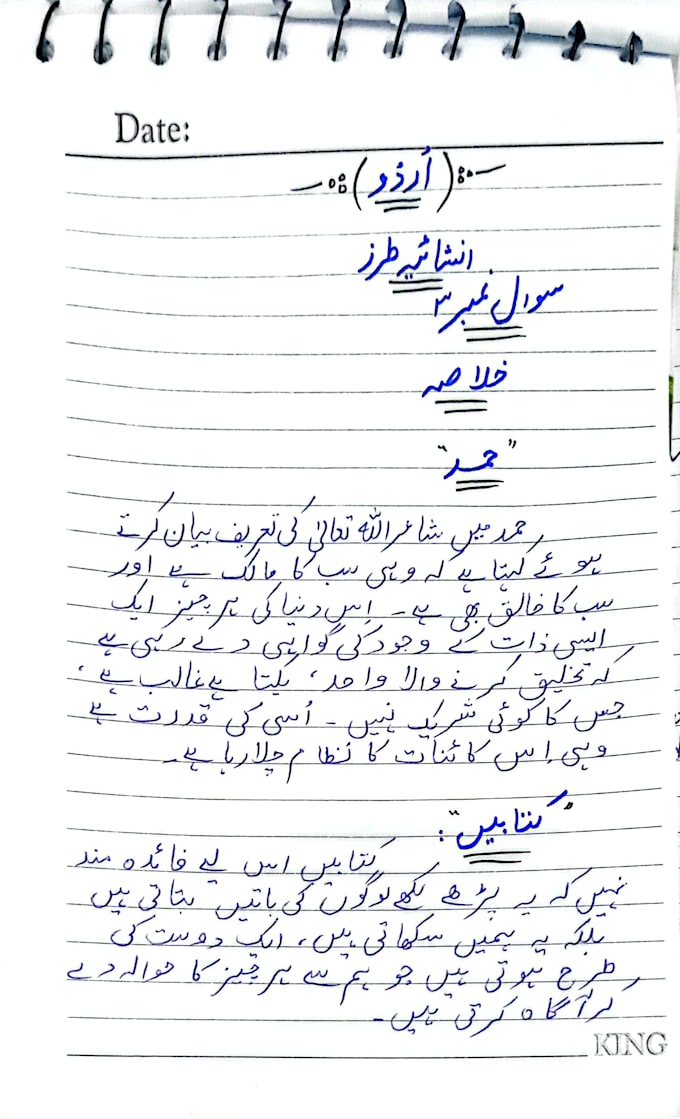 Date:
(اُردُو)
انشائیہ طرز
سوال نمبر ۳
خلاصہ
"حمد"
حمد میں شاعر اللہ تعالیٰ کی تعریف بیان کرتے
ہوئے کہتا ہے کہ وہی سب کا مالک ہے اور
سب کا خالق بھی ہے۔ اِس دنیا کی ہر چیز ایک
ایسی ذات کے وجود کی گواہی دے رہی ہے
کہ تخلیق کرنے والا واحد، یکتا ہے غالب ہے،
جس کا کوئی شریک نہیں۔ اُسی کی قدرت ہے
وہی اِس کائنات کا نظام چلا رہا ہے۔
"کتابیں":
کتابیں اس لیے فائدہ مند
نہیں کہ یہ پڑھے لکھے لوگوں کی باتیں بتاتی ہیں
بلکہ یہ ہمیں سکھاتی ہیں، ایک دوست کی
طرح ہوتی ہیں جو ہم سے ہر چیز کا حوالہ دے
کر آگاہ کرتی ہیں۔
KING